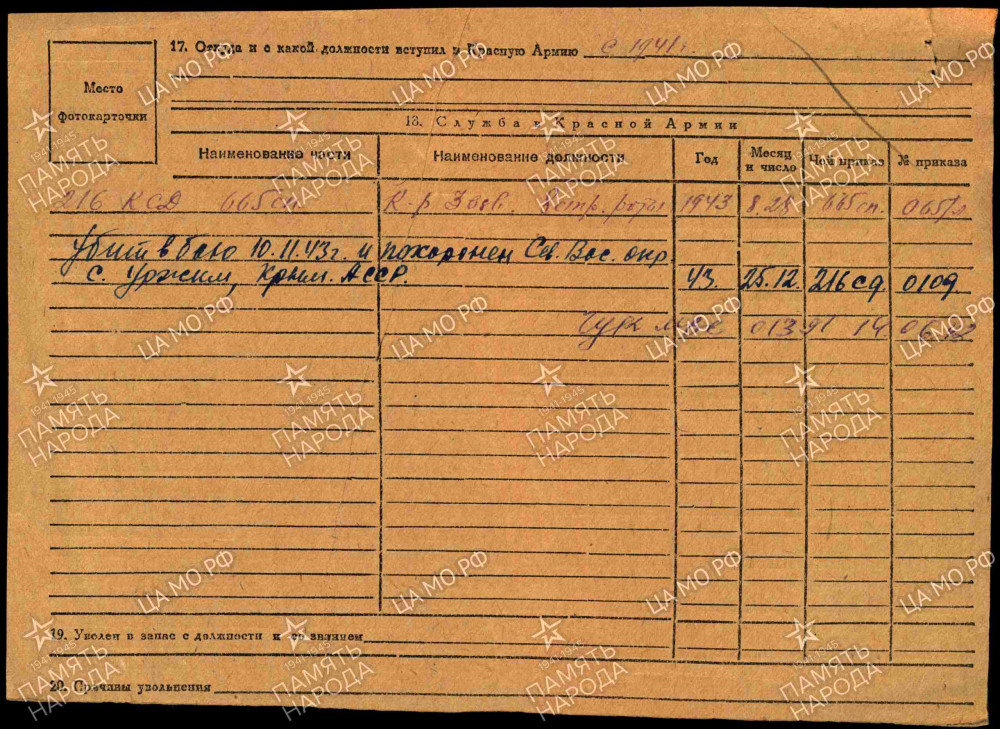 17. Откуда и с какой должности вступил в Красную Армию с 1941 г.
Место
фотокарточки
18. Служба в Красной Армии
Наименование части Наименование должности Год Месяц и число Чей приказ № приказа
216 КСД 665 сп К-р 1943 8.28 665 сп.
Убит в бою 10.11.43 г. и похоронен Сев. Вос. окр.
с. Уржин, Крым. АССР. 43. 25.12. 216 сд 0109.
19. Уволен в запас с должности и со званием
20. Причины увольнения
ЦА МО РФ
1941-1945
ПАМЯТЬ
НАРОДА